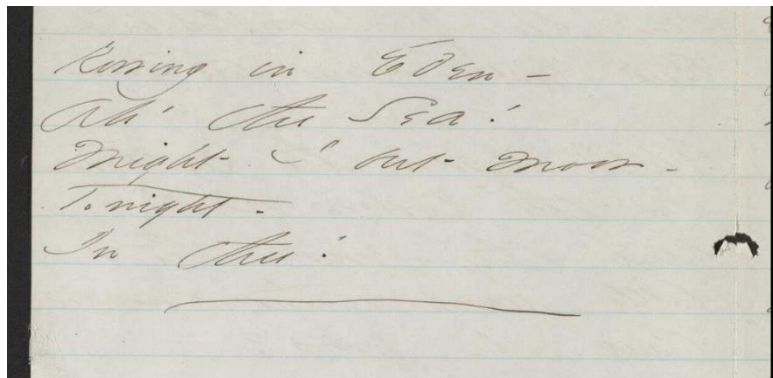 Rowing in Eden –
Ah! the Sea!
Might I but moor –
Tonight –
In thee!